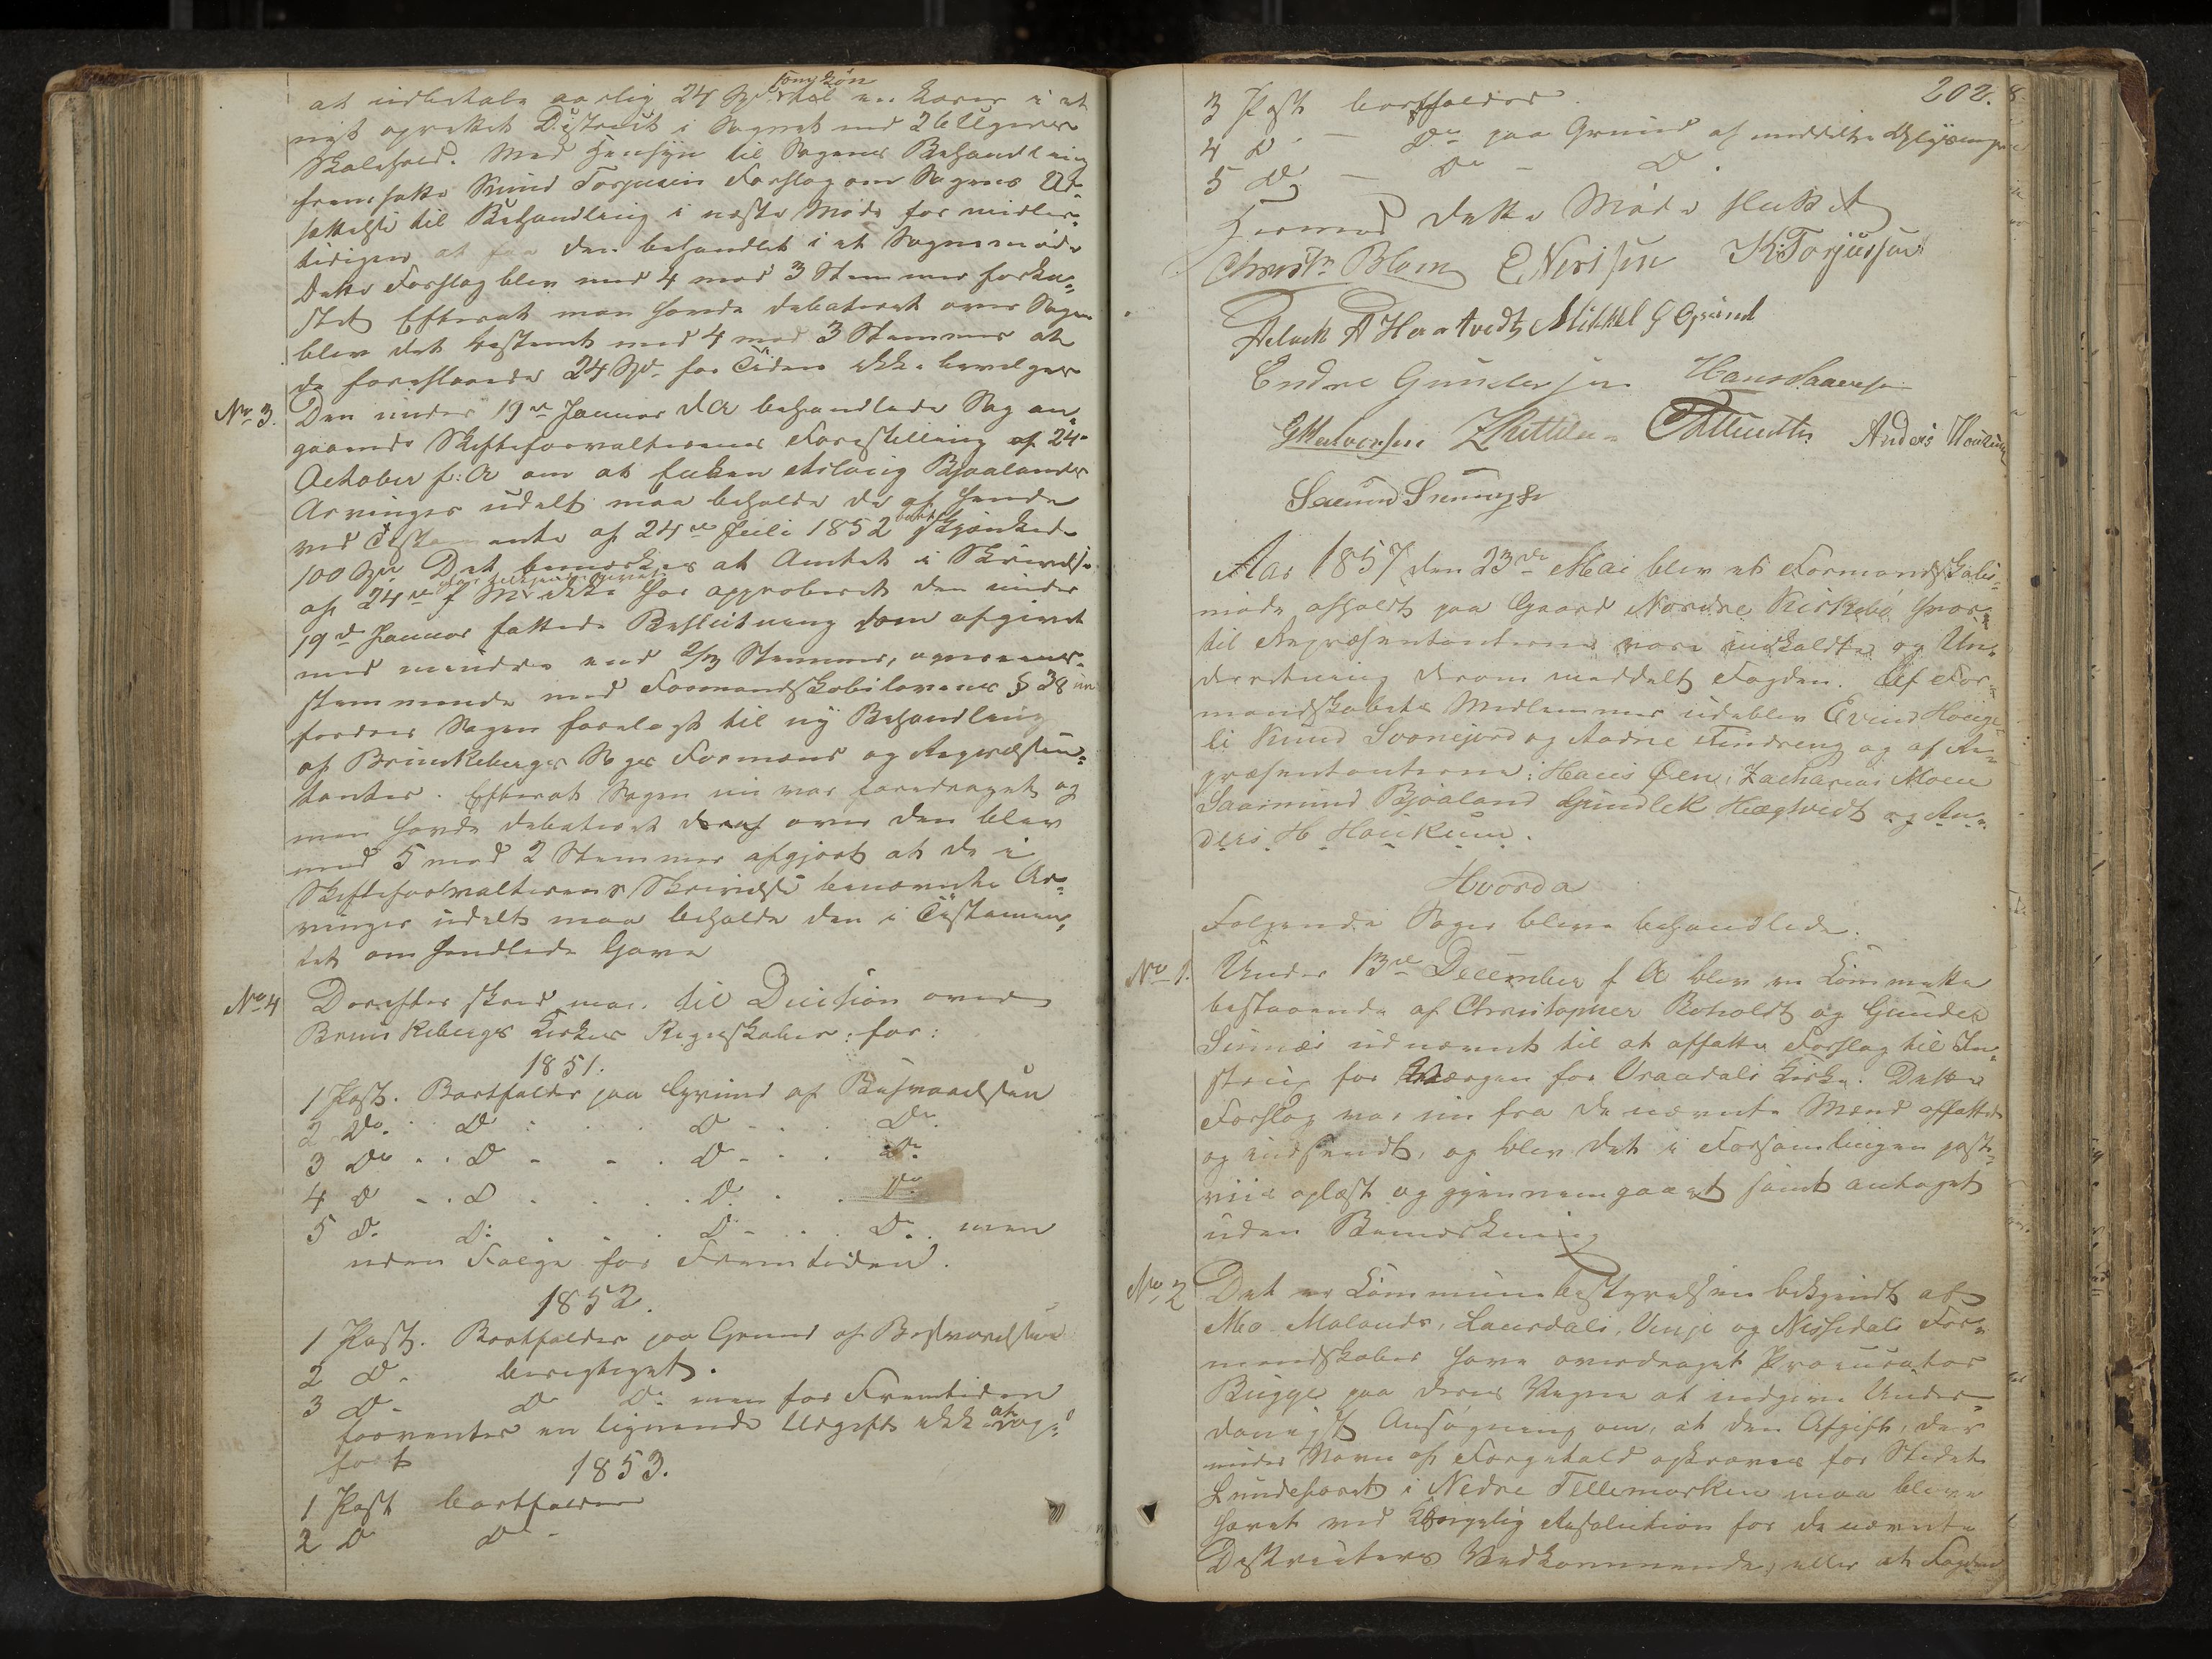 at udbetale aarlig 24 Spd som Løn en Lærer i et
nyt oprettet District i Sognet med 26 Ugers
Skolehold. Med Hensyn til Sagens Behandling
fremsatte Knud Torjusen Forslag om Sagens Ud-
sættelse til Behandling i næste Møde for midler-
tidigen at faa den behandlet i et Sognemøde
Dette Forslag blev med 4 mod 3 Stemmer forka-
stet Efterat man havde debateret over Sagen
blev det bestemt med 4 mod 3 Stemmer at
de foreslaaede 24 Spd. for Tiden ikke bevilges
No 3. Den under 19de Januar d A behandlede Sag an-
gaaende Skifteforvalterens Forestilling af 24
October f: A om at Enken Aslaug Bjaalands
Arvinger udelt maa beholde de af hende
ved Testamente af 24de Juli 1852 bort skjænkede
100 Spd. Det bemærkes at Amtet i Skrivelse
af 24de f M ikke har approberet den under
19de Januar fattede Beslutning som afgivet
med mindre end 2/3 Stemmer, overeens-
stemmende med Formandskabslovens § 38
fordres Sagen forelagt til ny Behandling
af Brunkebergs Sogns Formænd og Repræsen-
tanter. Efterat Sagen nu var foredraget og
man havde debateret over den blev
med 5 mod 2 Stemmer afgjort at de i
Skifteforvalterens Skrivelse benævnte Ar-
vinger udelt maa beholde den i Testamen-
tet omhandlede Gave
No 4 Derefter skred man til Decision over
Brunkebergs Kirkes Regnskaber: for:
1851.
1 Post. Bortfalder paa Grund af Besvarelsen
2 Do. Do Do Do.
3 Do Do Do Do.
4 Do Do Do Do
5 Do Do Do Do. men
uden Følge for Fremtiden.
1852.
1 Post. Bortfalder paa Grund af Besvarelsen
2 Do. berigtiget.
3 Do. Do Do men for Fremtiden
forventes en lignende Udgift ikke at
1853.
1 Post bortfalder
2 Do Do
202.
3 Post bortfalder.
4 Do — Do paa Grund af meddelte Oplysninger
5 Do — Do — Do.
Hermed dette Møde sluttet
Christn Blom E Nerisen K: Torjussen
Aslack A Haatvedt Mikkel G Grind
Endre Gundersen Hans Saavesen
G Halvorsen Anders Haukum
Aar 1857 den 23de Mai blev et Formandskabs-
møde afholdt paa Gaard Nordre Kirkebø hvor-
til Repræsentanterne vare indkaldte og Un-
derretning derom meddelt Fogden. Af For-
mandskabets Medlemmer udeblev Evind Houge-
li Knud Svanejord og Aadne Findreng og af Re-
præsentanterne: Hans Øen, Zacharias Moen
Saamund Bjaaland Gundlek Hægtvedt og An-
ders H Haukum.
Hvorda
Følgende Sager bleve behandlede.
No 1. Under 13de December f A blev en Committe
bestaaende af Christopher Roholdt og Gunder
Sunnæs udnævnt til at affatte Forslag til In-
strux for Værgen for Vraadals Kirke. Dette
Forslag var nu fra de nævnte Mænd affattet
og indsendt, og blev det i Forsamlingen post-
viis oplæst og gjennemgaaet samt antaget
uden Bemærkning
No 2 Det er Communebestyrelsen bekjendt at
Mo Molands, Laurdals, Vinje og Nissedals For-
mandskaber have overdraget Procurator
Bugge paa deres Vegne at indgive Under-
danigst Ansøgning om, at den Afgift, der
under Navn af Forgehold opkræves for Stedet
Lundeharet i Nedre Tellemarken maa blive
hævet ved Kongelig Resolution for de nævnte
Districters Vedkommende, eller at Fogden